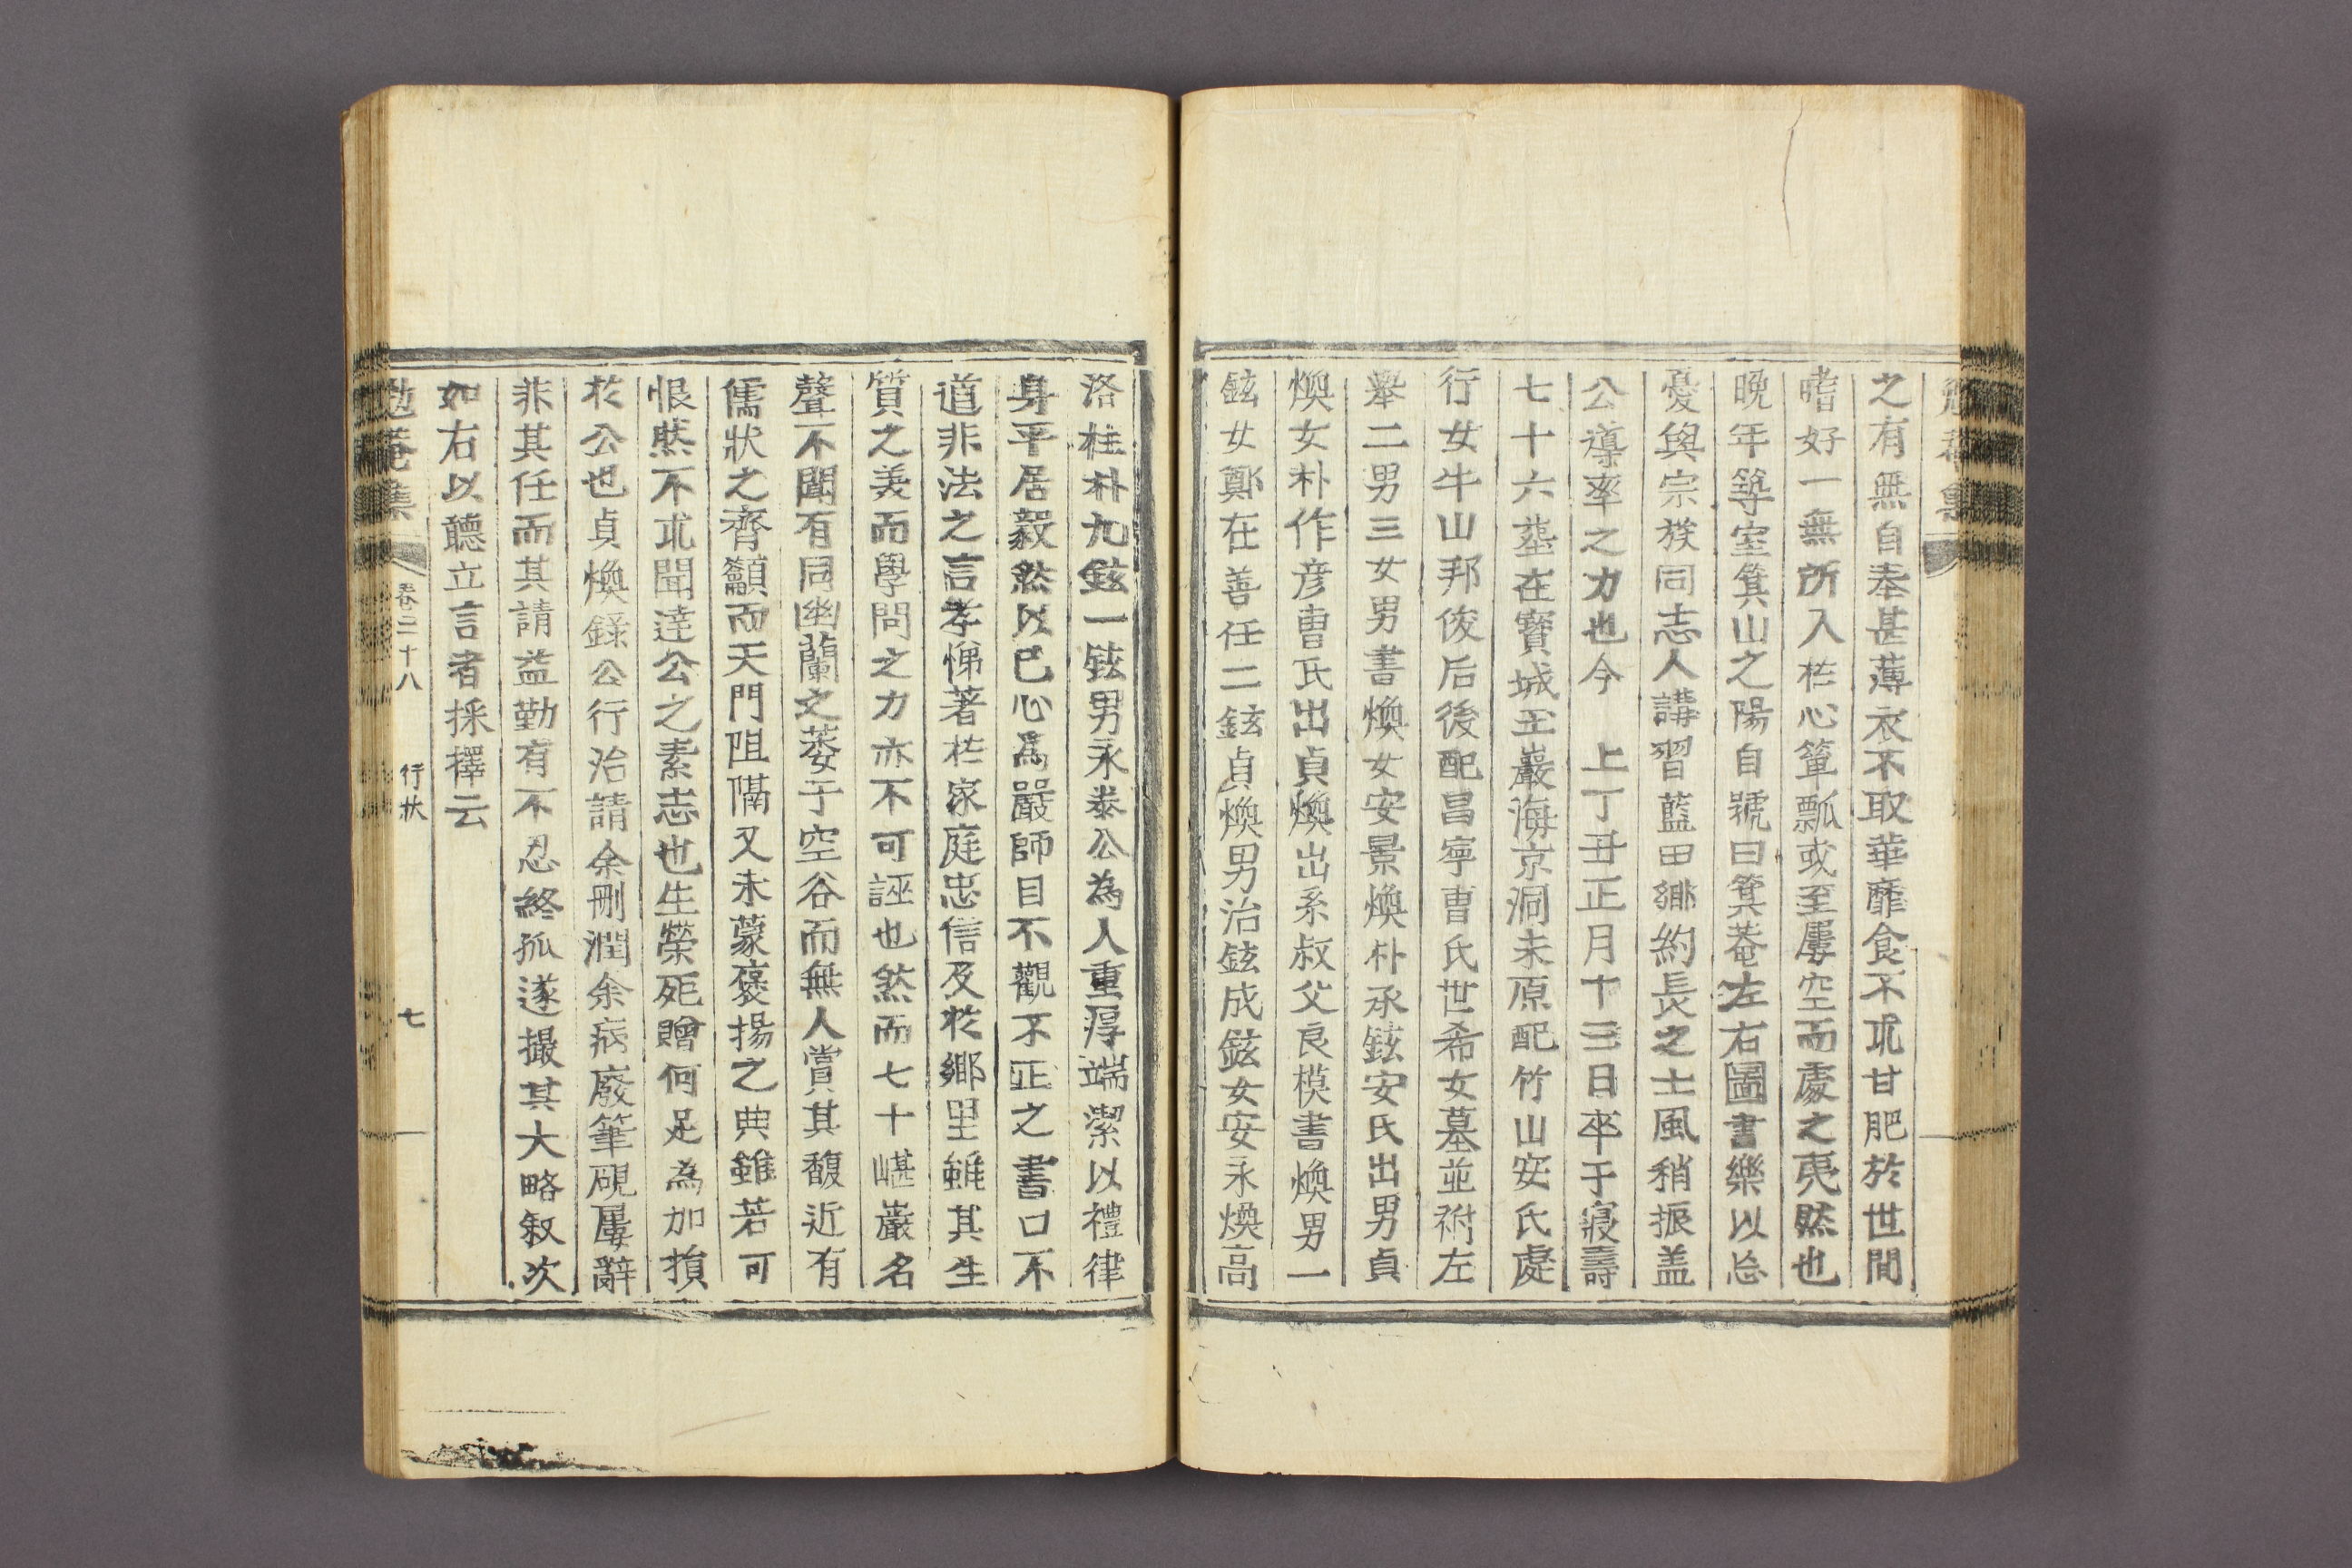 之有無自奉甚薄衣不取華靡食不求甘肥於世間
嗜好一無所入於心簞瓢或至屢空而處之夷然也
晩年築室箕山之陽自號曰箕菴左右圖書樂以忘
憂與宗族同志人講習藍田鄉約長之士風稍振盖
公導率之力也今 上丁丑正月十三日卒于寢壽
七十六塟在寶城玉巖海京洞未原配竹山安氏處
行女牛山邦俊后後配昌寧曺氏世希女墓並祔左
擧二男三女男書煥女安景煥朴承鉉安氏出男貞
煥女朴作彦曺氏出貞煥出系叔父良模書煥男一
鉉女鄭在善任二鉉貞煥男治鉉成鉉女安永煥高
洛柱朴九鉉一鉉男永泰公為人重厚端潔以禮律
身平居毅然以已心爲嚴師目不觀不正之書口不
道非法之言孝悌著於家庭忠信及於鄉里雖其生
質之美而學問之力亦不可誣也然而七十嵁巖名
聲不聞有同幽蘭之萎于空谷而無人賞其馥近有
儒狀之齊籲而天門阻隔又未蒙褒揚之典雖若可
恨然不求聞達公之素志也生榮死贈何足為加損
於公也貞煥錄公行治請余刪潤余病廢筆硯屢辭
非其任而其請益勤有不忍終孤遂撮其大略叙次
如右以聽立言者採擇云
勉菴集 卷二十八 行狀 七